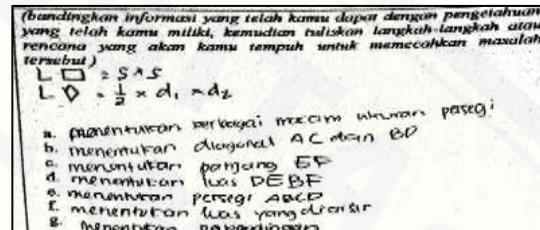 (bandingkan informasi yang telah kamu dapat dengan pengetahuan
yang telah kamu miliki, kemudian tuliskan langkah-langkah atau
rencana yang akan kamu tempuh untuk memecahkan masalah
tersebut)
L □ = S × S
L ◇ = 1/2 × d1 × d2
a. menentukan berbagai macam ukuran persegi
b. menentukan diagonal AC dan BD
c. menentukan panjang EF
d. menentukan luas DEBF
e. menentukan persegi ABCD
f. menentukan luas yang diarsir
g. menentukan perbandingan